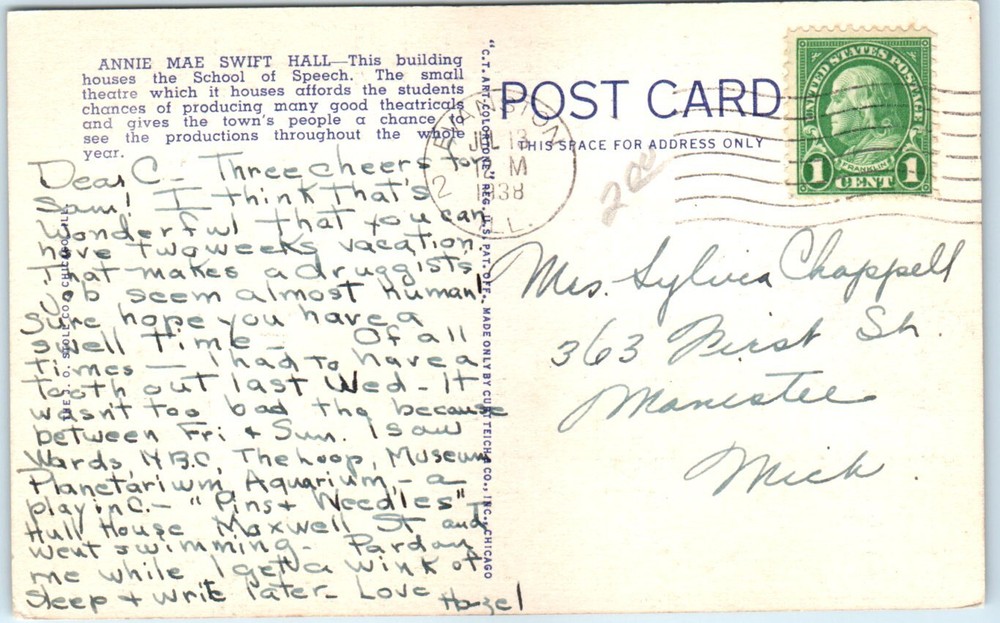 ANNIE MAE SWIFT HALL—This building
houses the School of Speech. The small
theatre which it houses affords the students
chances of producing many good theatricals
and gives the town's people a chance to
see the productions throughout the whole
year.
Dear C— Three cheers for
Sam! I think that's
wonderful that you can
have two weeks vacation.
That makes a druggists
job seem almost human!
Sure hope you have a
swell time— Of all
times— I had to have a
tooth out last Wed— It
wasn't too bad tho because
between Fri + Sun. I saw
Wards, NBC, The Loop, Museum
Planetarium, Aquarium, — a
play in C.— "Pins + Needles"
Hull House Maxwell St and
went swimming— Pardon
me while I get a wink of
sleep + write later— Love Hazel
"C.T. ART-COLORTONE" REG. U.S. PAT. OFF. MADE ONLY BY CURT TEICH & CO., INC., CHICAGO
CHICAGO, ILL.
POST CARD
THIS SPACE FOR ADDRESS ONLY
EVANSTON
JUL 13
12 M
1938
ILL.
2
200
UNITED STATES POSTAGE
FRANKLIN
1 CENT 1
Mrs. Sylvia Chappell
363 First St.
Manistee
Mich